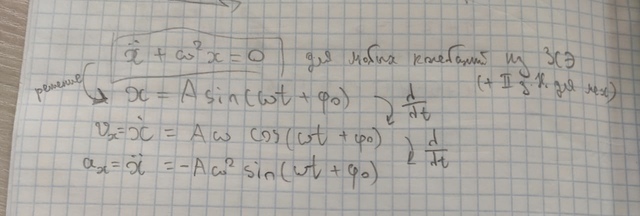 ẍ + ω²x = 0 для любых колебаний из ЗСЭ
(+ II з. Н. для мех)
решение
x = A sin(ωt + φ₀) d/dt
vₓ = ẋ = Aω cos(ωt + φ₀) d/dt
aₓ = ẍ = -Aω² sin(ωt + φ₀)